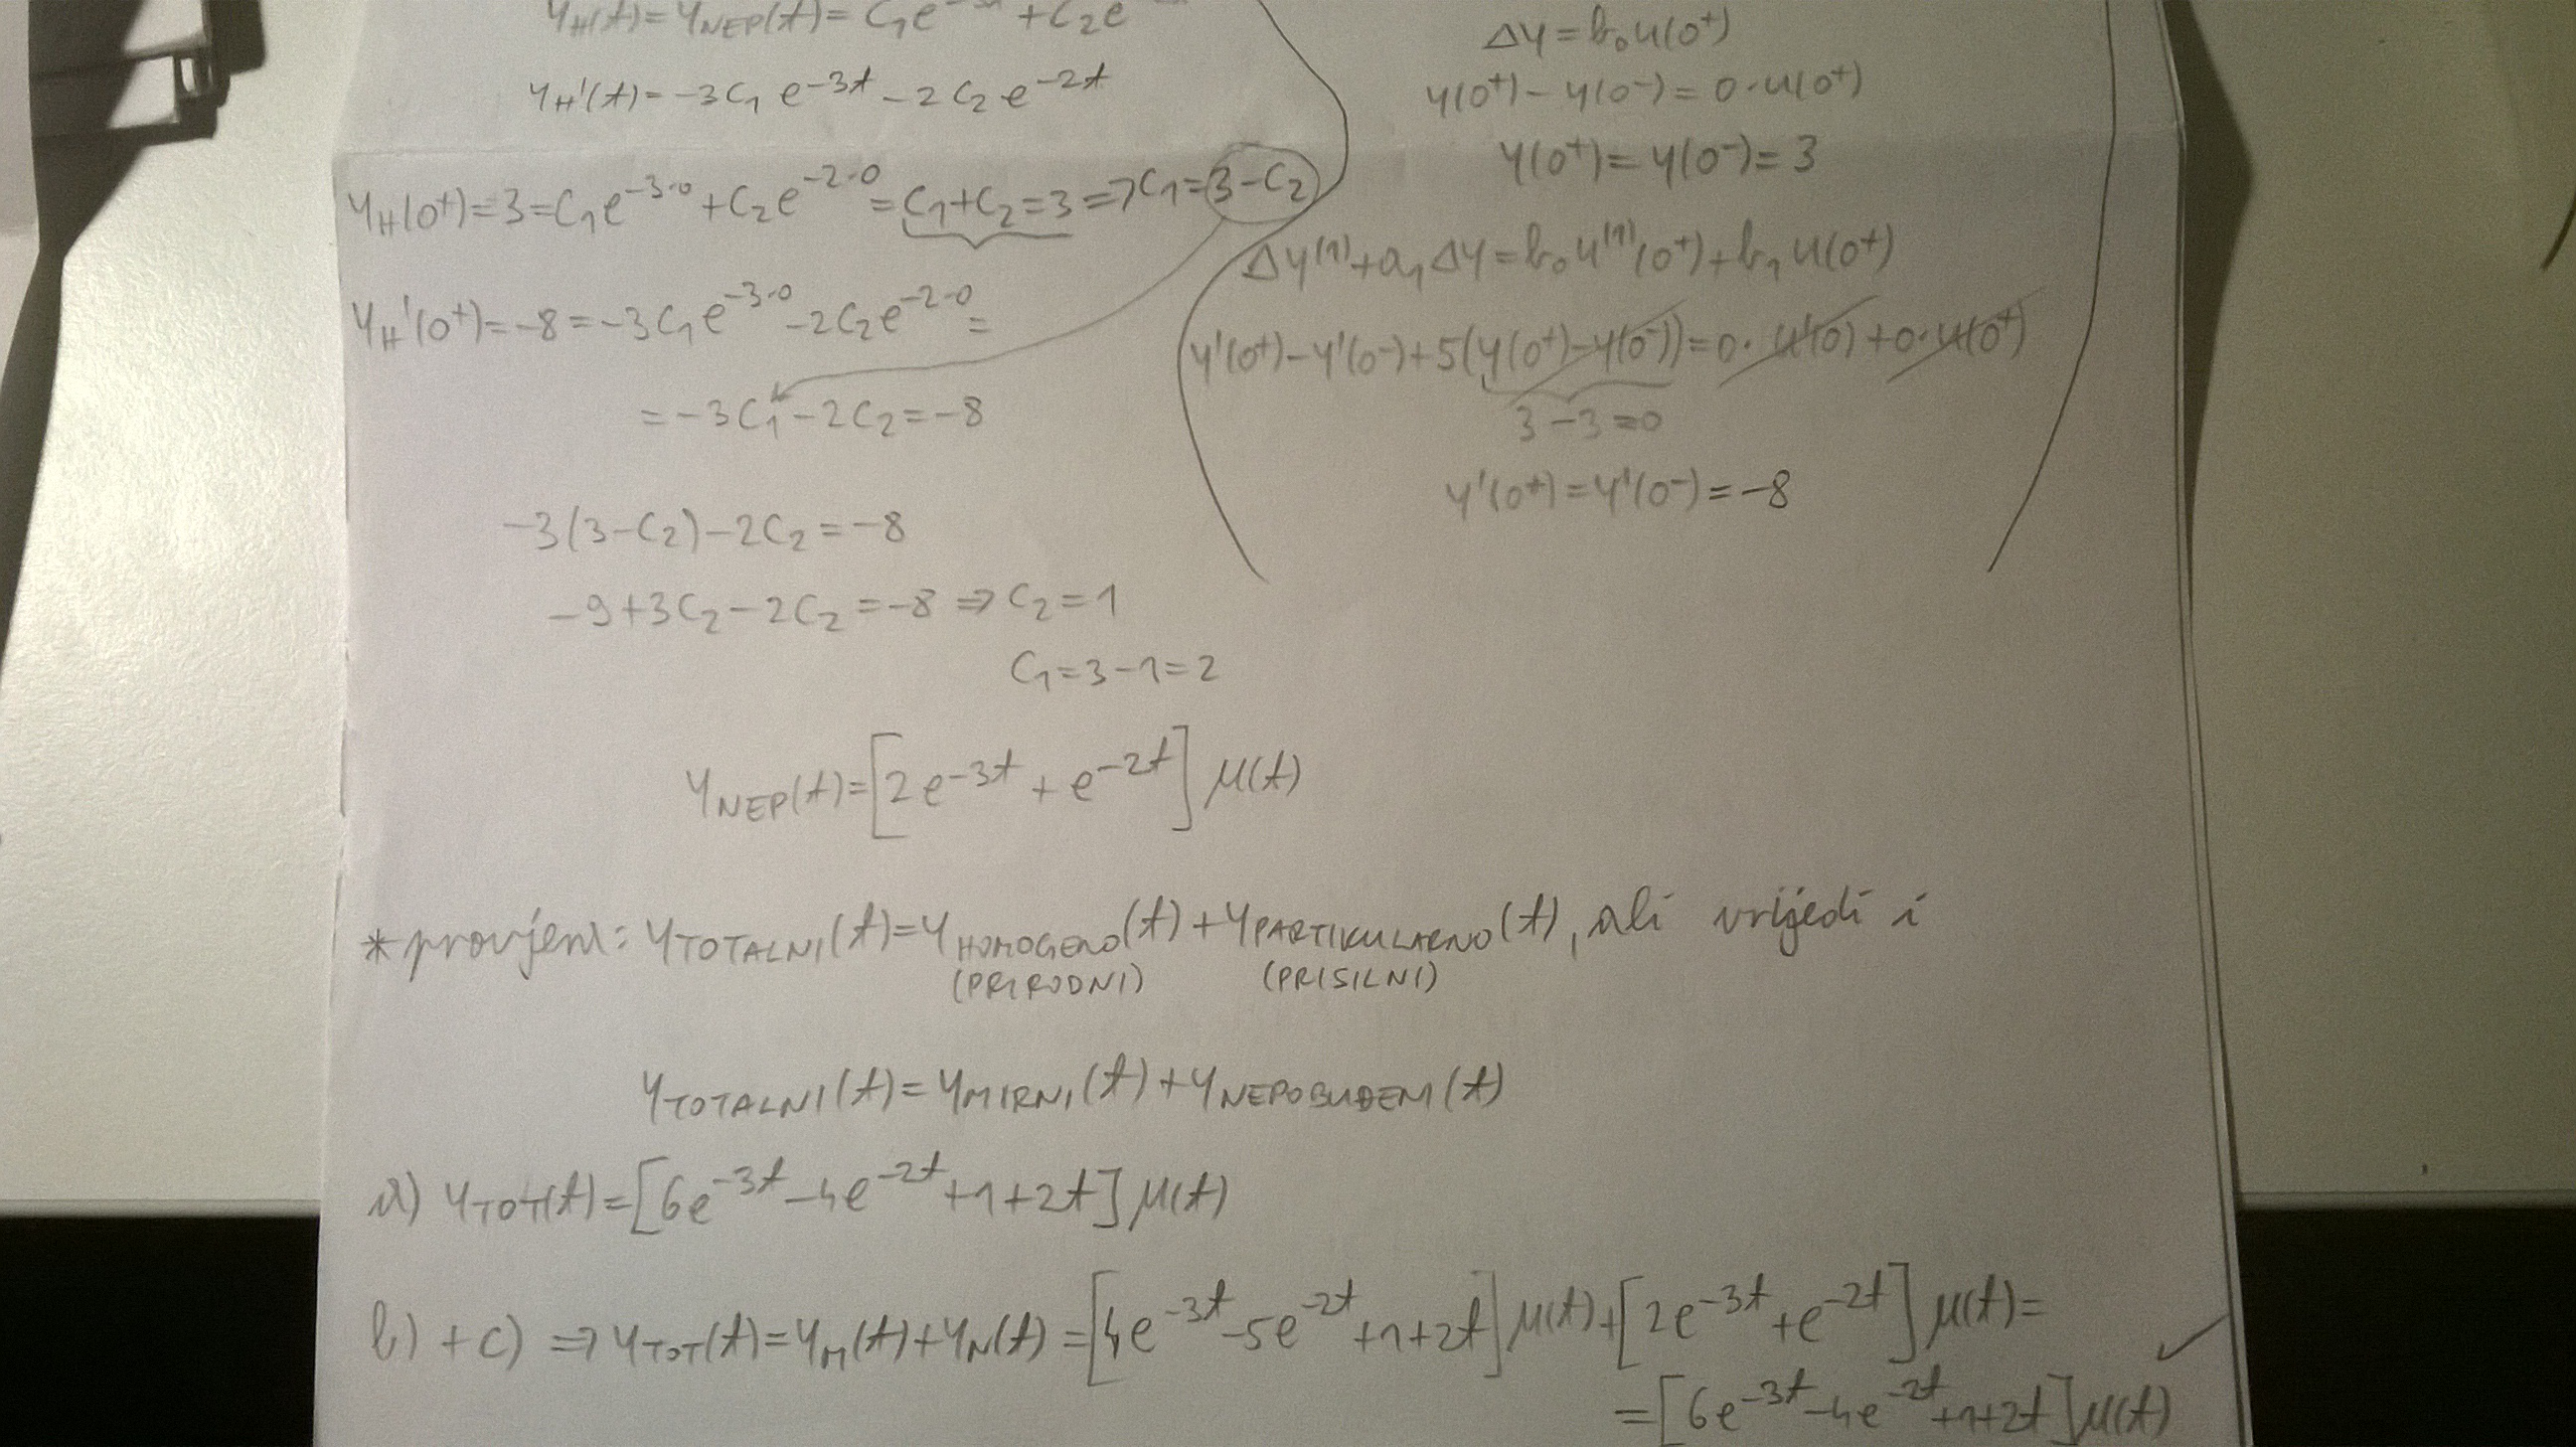 yH(t)=yNEP(t)=C₁e + C₂e
yH'(t)=-3C₁e^(-3t)-2C₂e^(-2t)
yH(0⁺)=3=C₁e^(-3·0)+C₂e^(-2·0)=C₁+C₂=3⇒C₁=3-C₂
yH'(0⁺)=-8=-3C₁e^(-3·0)-2C₂e^(-2·0)=
=-3C₁-2C₂=-8
-3(3-C₂)-2C₂=-8
-9+3C₂-2C₂=-8⇒C₂=1
C₁=3-1=2
Δy=b₀u(0⁺)
y(0⁺)-y(0⁻)=0·u(0⁺)
y(0⁺)=y(0⁻)=3
Δy⁽¹⁾+a₁Δy=b₀u⁽¹⁾(0⁺)+b₁u(0⁺)
y'(0⁺)-y'(0⁻)+5(y(0⁺)-y(0⁻))=0·u'(0)+0·u(0⁺)
3-3=0
y'(0⁺)=y'(0⁻)=-8
yNEP(t)=[2e^(-3t)+e^(-2t)]μ(t)
*provjera: yTOTALNI(t)=yHOMOGENO(t)+yPARTIKULARNO(t), ali vrijedi i
(PRIRODNI) (PRISILNI)
yTOTALNI(t)=yMIRNI(t)+yNEPOBUĐENI(t)
a) yTOT(t)=[6e^(-3t)-4e^(-2t)+1+2t]μ(t)
b)+c) ⇒yTOT(t)=yM(t)+yN(t)=[4e^(-3t)-5e^(-2t)+1+2t]μ(t)+[2e^(-3t)+e^(-2t)]μ(t)=
=[6e^(-3t)-4e^(-2t)+1+2t]μ(t) ✓